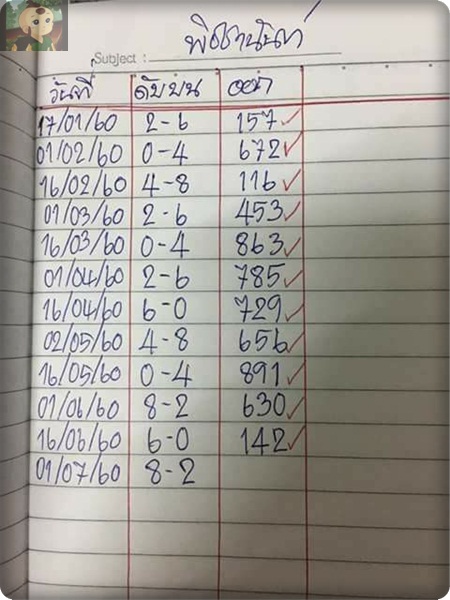 พิชานันท์
Subject :
วันที่ ดับบน ออก
17/01/60 2-6 157 ✓
01/02/60 0-4 672 ✓
16/02/60 4-8 116 ✓
01/03/60 2-6 453 ✓
16/03/60 0-4 863 ✓
01/04/60 2-6 785 ✓
16/04/60 6-0 729 ✓
02/05/60 4-8 656 ✓
16/05/60 0-4 891 ✓
01/06/60 8-2 630 ✓
16/06/60 6-0 142 ✓
01/07/60 8-2